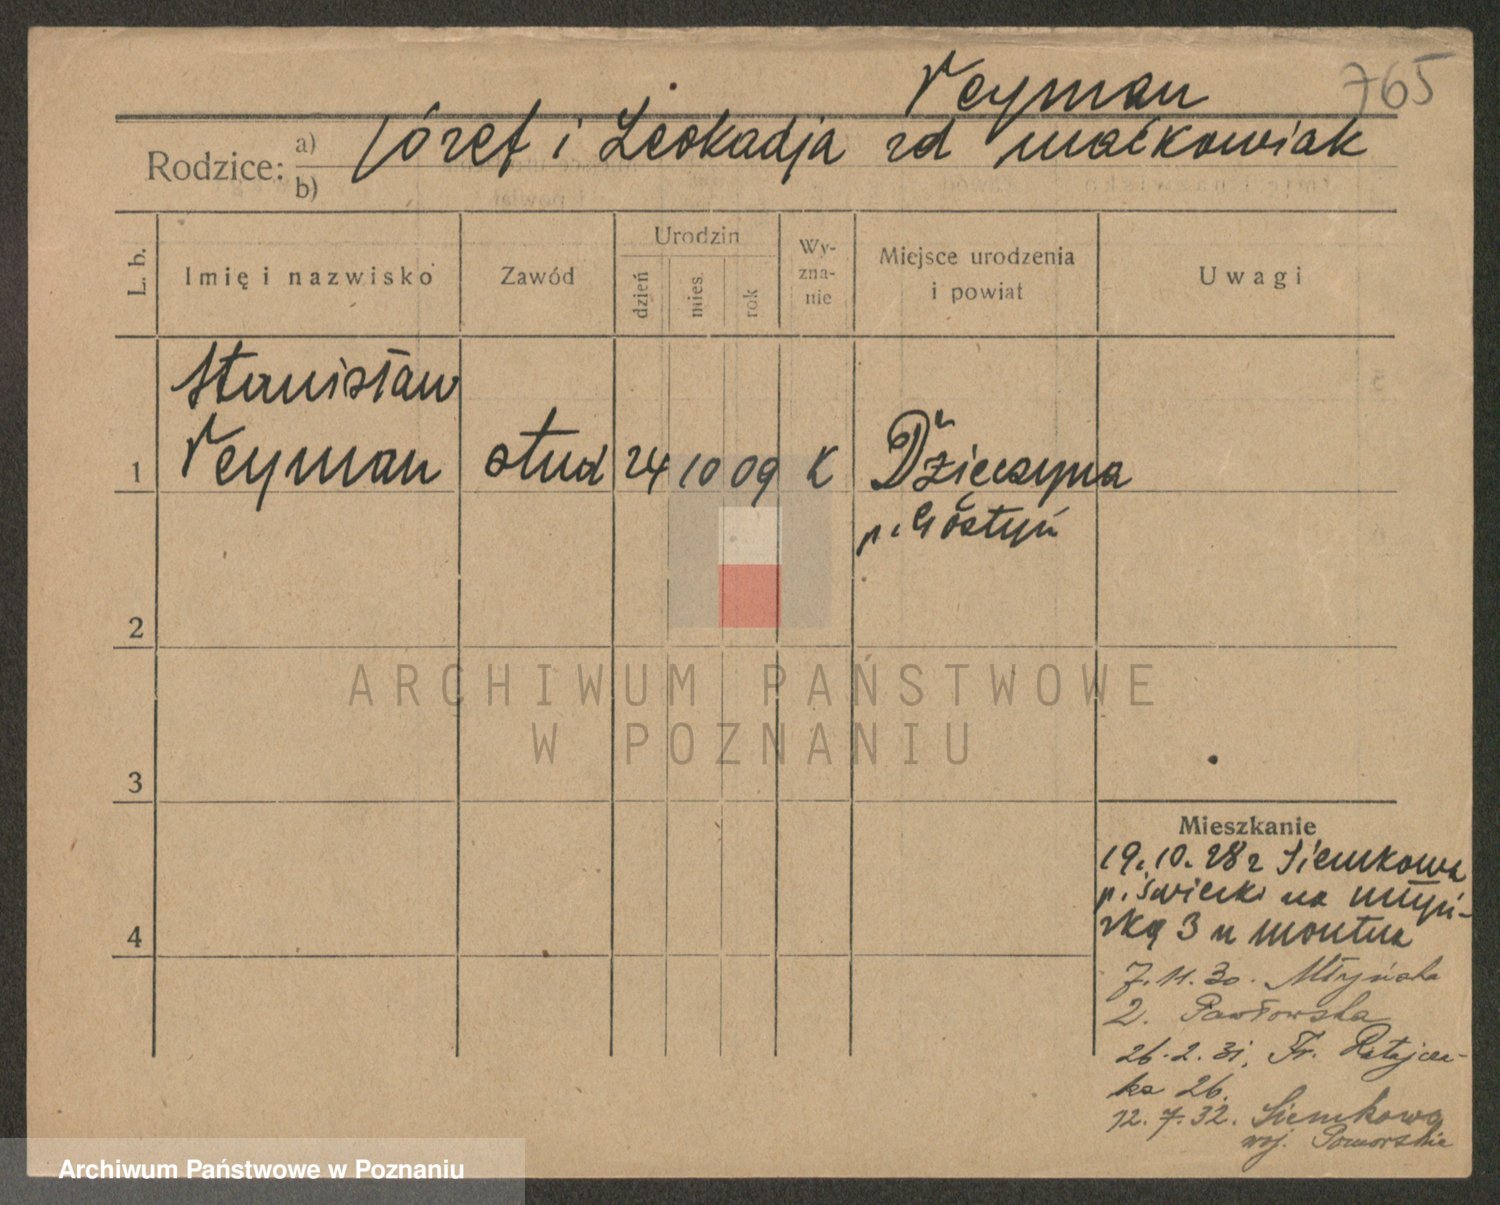 Veyman
765
Rodzice: a) Józef i Leokadja zd Maćkowiak
b)
L. b.
Imię i nazwisko
Zawód
Urodzin
dzień
mies.
rok
Wy-
zna-
nie
Miejsce urodzenia
i powiat
Uwagi
Stanisław
1 Veyman stud 24 10 09 K Dzięczyna
p. Gostyń
2
3
4
Mieszkanie
19.10.28 z Siemkowa
p. świecki na młyń-
ską 3 u
7.11.30. Młyńska
2. Pawłowska
26.2.31. Fr. Ratajcza-
ka 26.
12.7.32. Siemkowo
woj. Pomorskie
ARCHIWUM PAŃSTWOWE
W POZNANIU
Archiwum Państwowe w Poznaniu